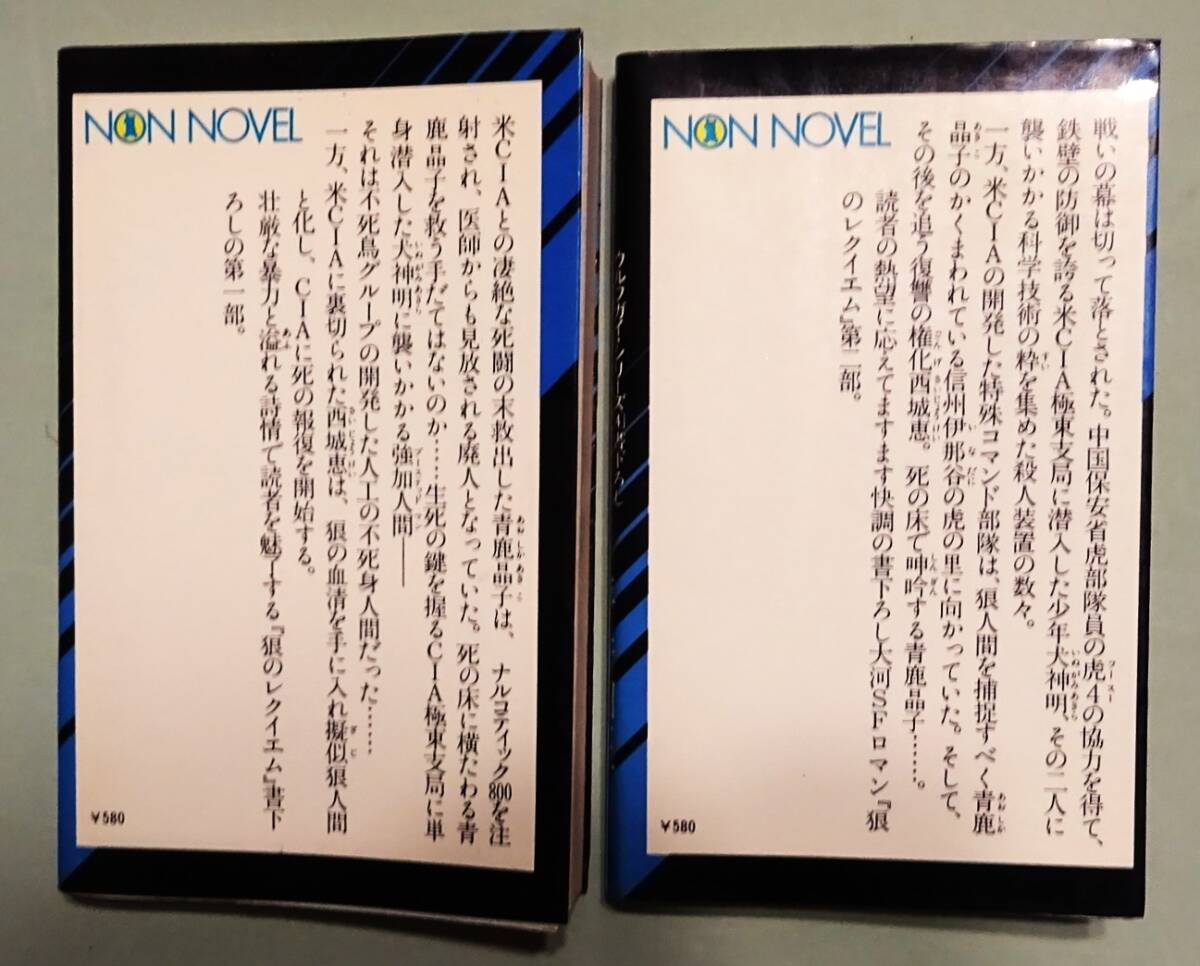 NON NOVEL
米CIAとの凄絶な死闘の末救出した青鹿晶子は、ナルコティック800を注
射され、医師からも見放される廃人となっていた。死の床に横たわる青
鹿晶子を救う手だてはないのか……生死の鍵を握るCIA極東支局に単
身潜入した犬神明に襲いかかる強加人間――
それは不死鳥グループの開発した人工の不死身人間だった……
一方、米CIAに裏切られた西城恵は、狼の血清を手に入れ擬似狼人間
と化し、CIAに死の報復を開始する。
壮厳な暴力と溢れる詩情で読者を魅了する『狼のレクイエム』書下
ろしの第一部。
¥580
NON NOVEL
戦いの幕は切って落とされた。中国保安省虎部隊員の虎4の協力を得て、
鉄壁の防御を誇る米CIA極東支局に潜入した少年犬神明、その二人に
襲いかかる科学技術の粋を集めた殺人装置の数々。
一方、米CIAの開発した特殊コマンド部隊は、狼人間を捕捉すべく青鹿
晶子のかくまわれている信州伊那谷の虎の里に向かっていた。そして、
その後を追う復讐の権化西城恵。死の床で呻吟する青鹿晶子……。
読者の熱望に応えてますます快調の書下ろし大河SFロマン『狼
のレクイエム』第二部。
¥580